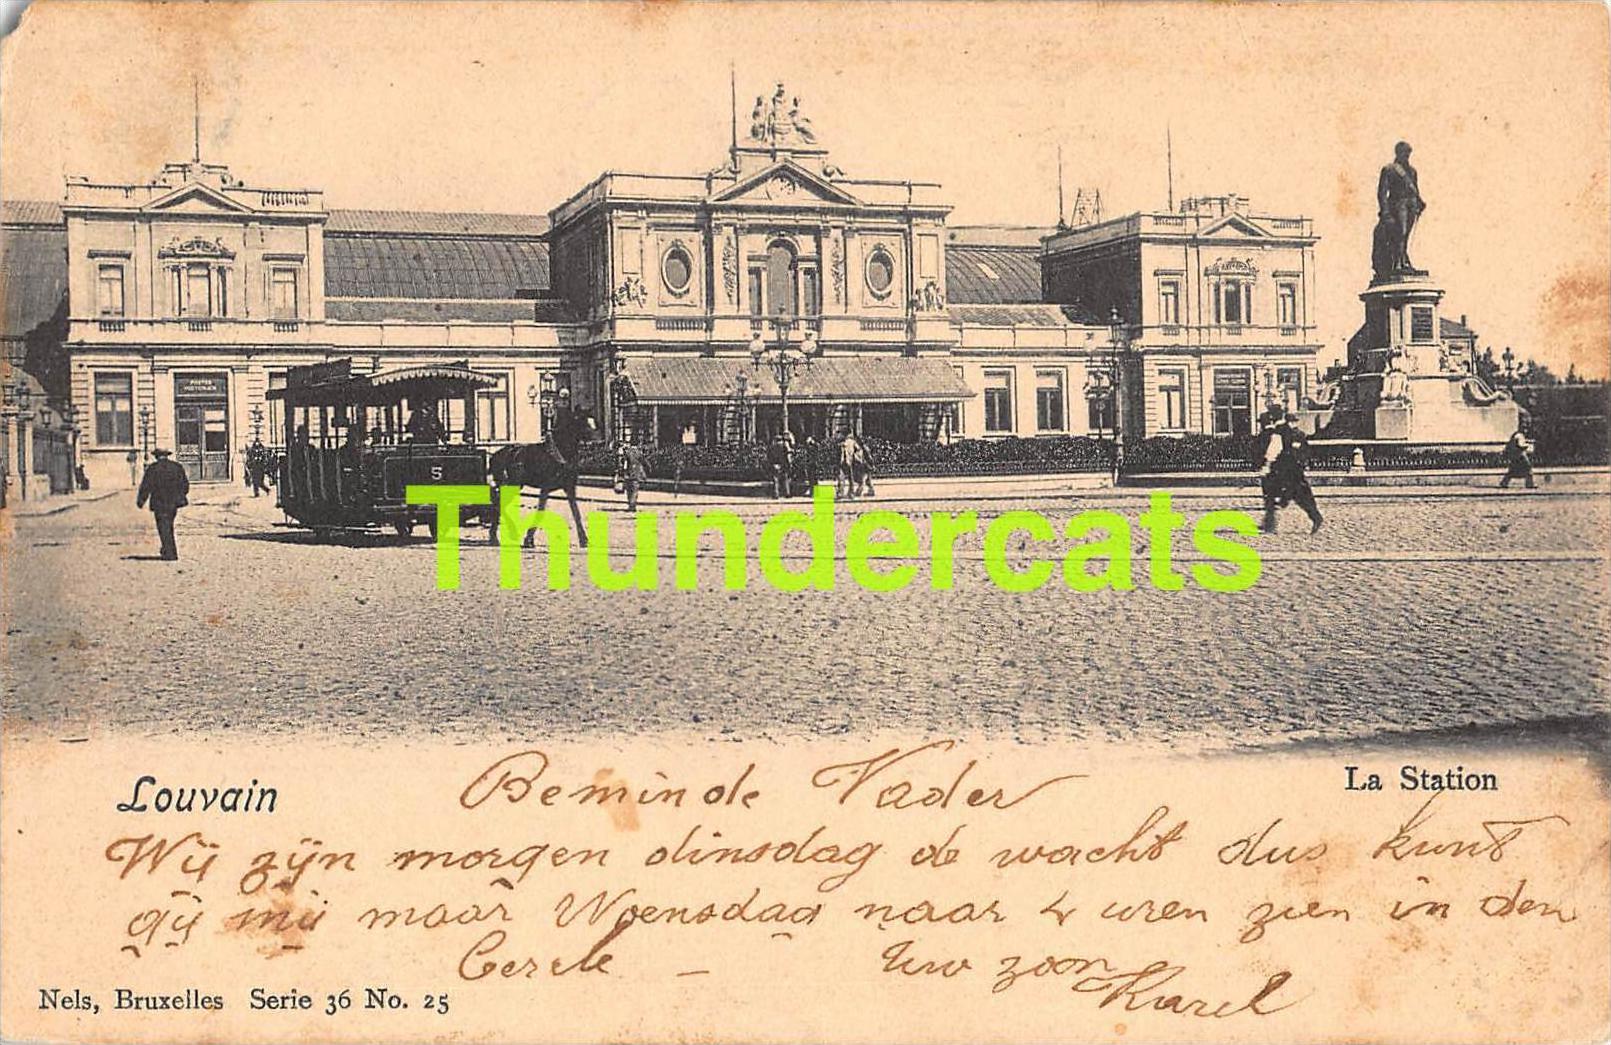 POSTES
5
Thundercats
Louvain
La Station
Beminde Vader
Wij zijn morgen dinsdag de wacht dus kunt
gij mij maar Woensdag naar 4 uren zien in den
Cercle – Uw zoon
Karel
Nels, Bruxelles Serie 36 No. 25